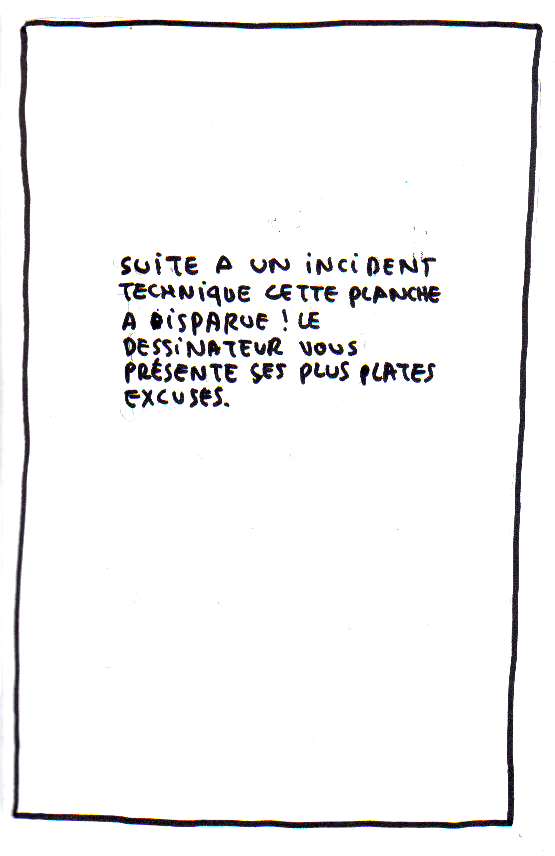 SUITE A UN INCIDENT
TECHNIQUE CETTE PLANCHE
A DISPARUE ! LE
DESSINATEUR VOUS
PRÉSENTE SES PLUS PLATES
EXCUSES.